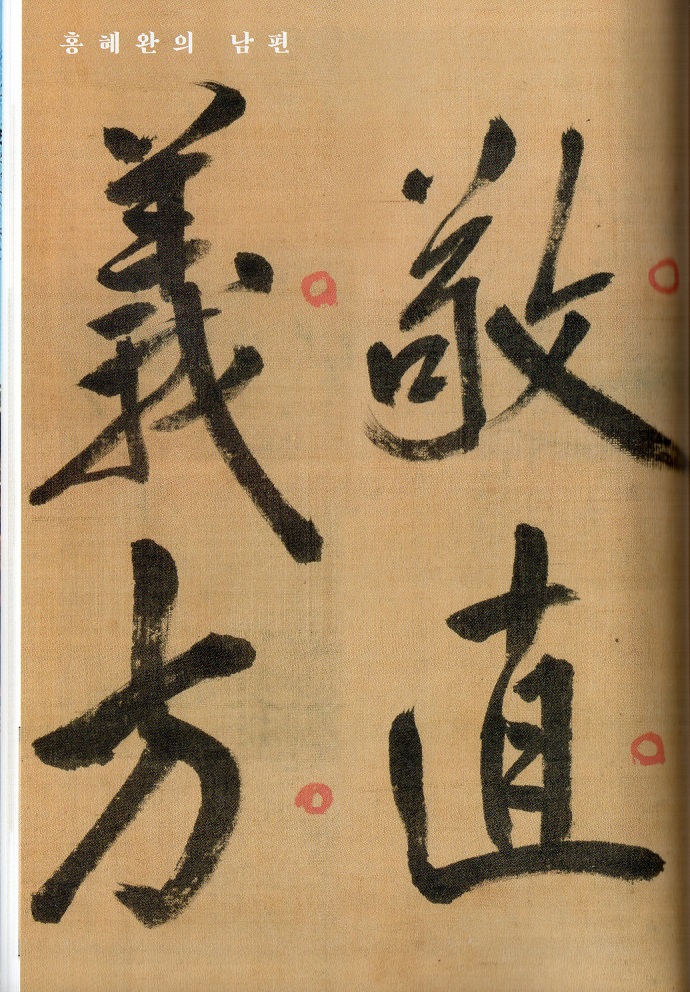 홍혜완의 남편
敬直
義方